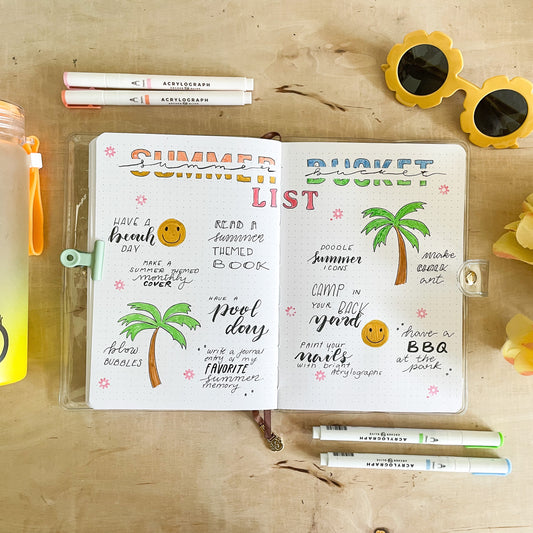 ACRYLOGRAPH
ACRYLOGRAPH
SUMMER BUCKET
summer bucket
LIST
HAVE A
beach
DAY
MAKE A
SUMMER THEMED
monthly
COVER
blow
BUBBLES
READ A
summer
THEMED
BOOK
HAVE A
pool
day
write a journal
entry of my
FAVORITE
summer
memory
DOODLE
summer
ICONS
CAMP IN
YOUR BACK
yard
PAINT YOUR
nails
with bright
Acrylographs
make
art
have a
BBQ
at the
park
ACRYLOGRAPH
ACRYLOGRAPH